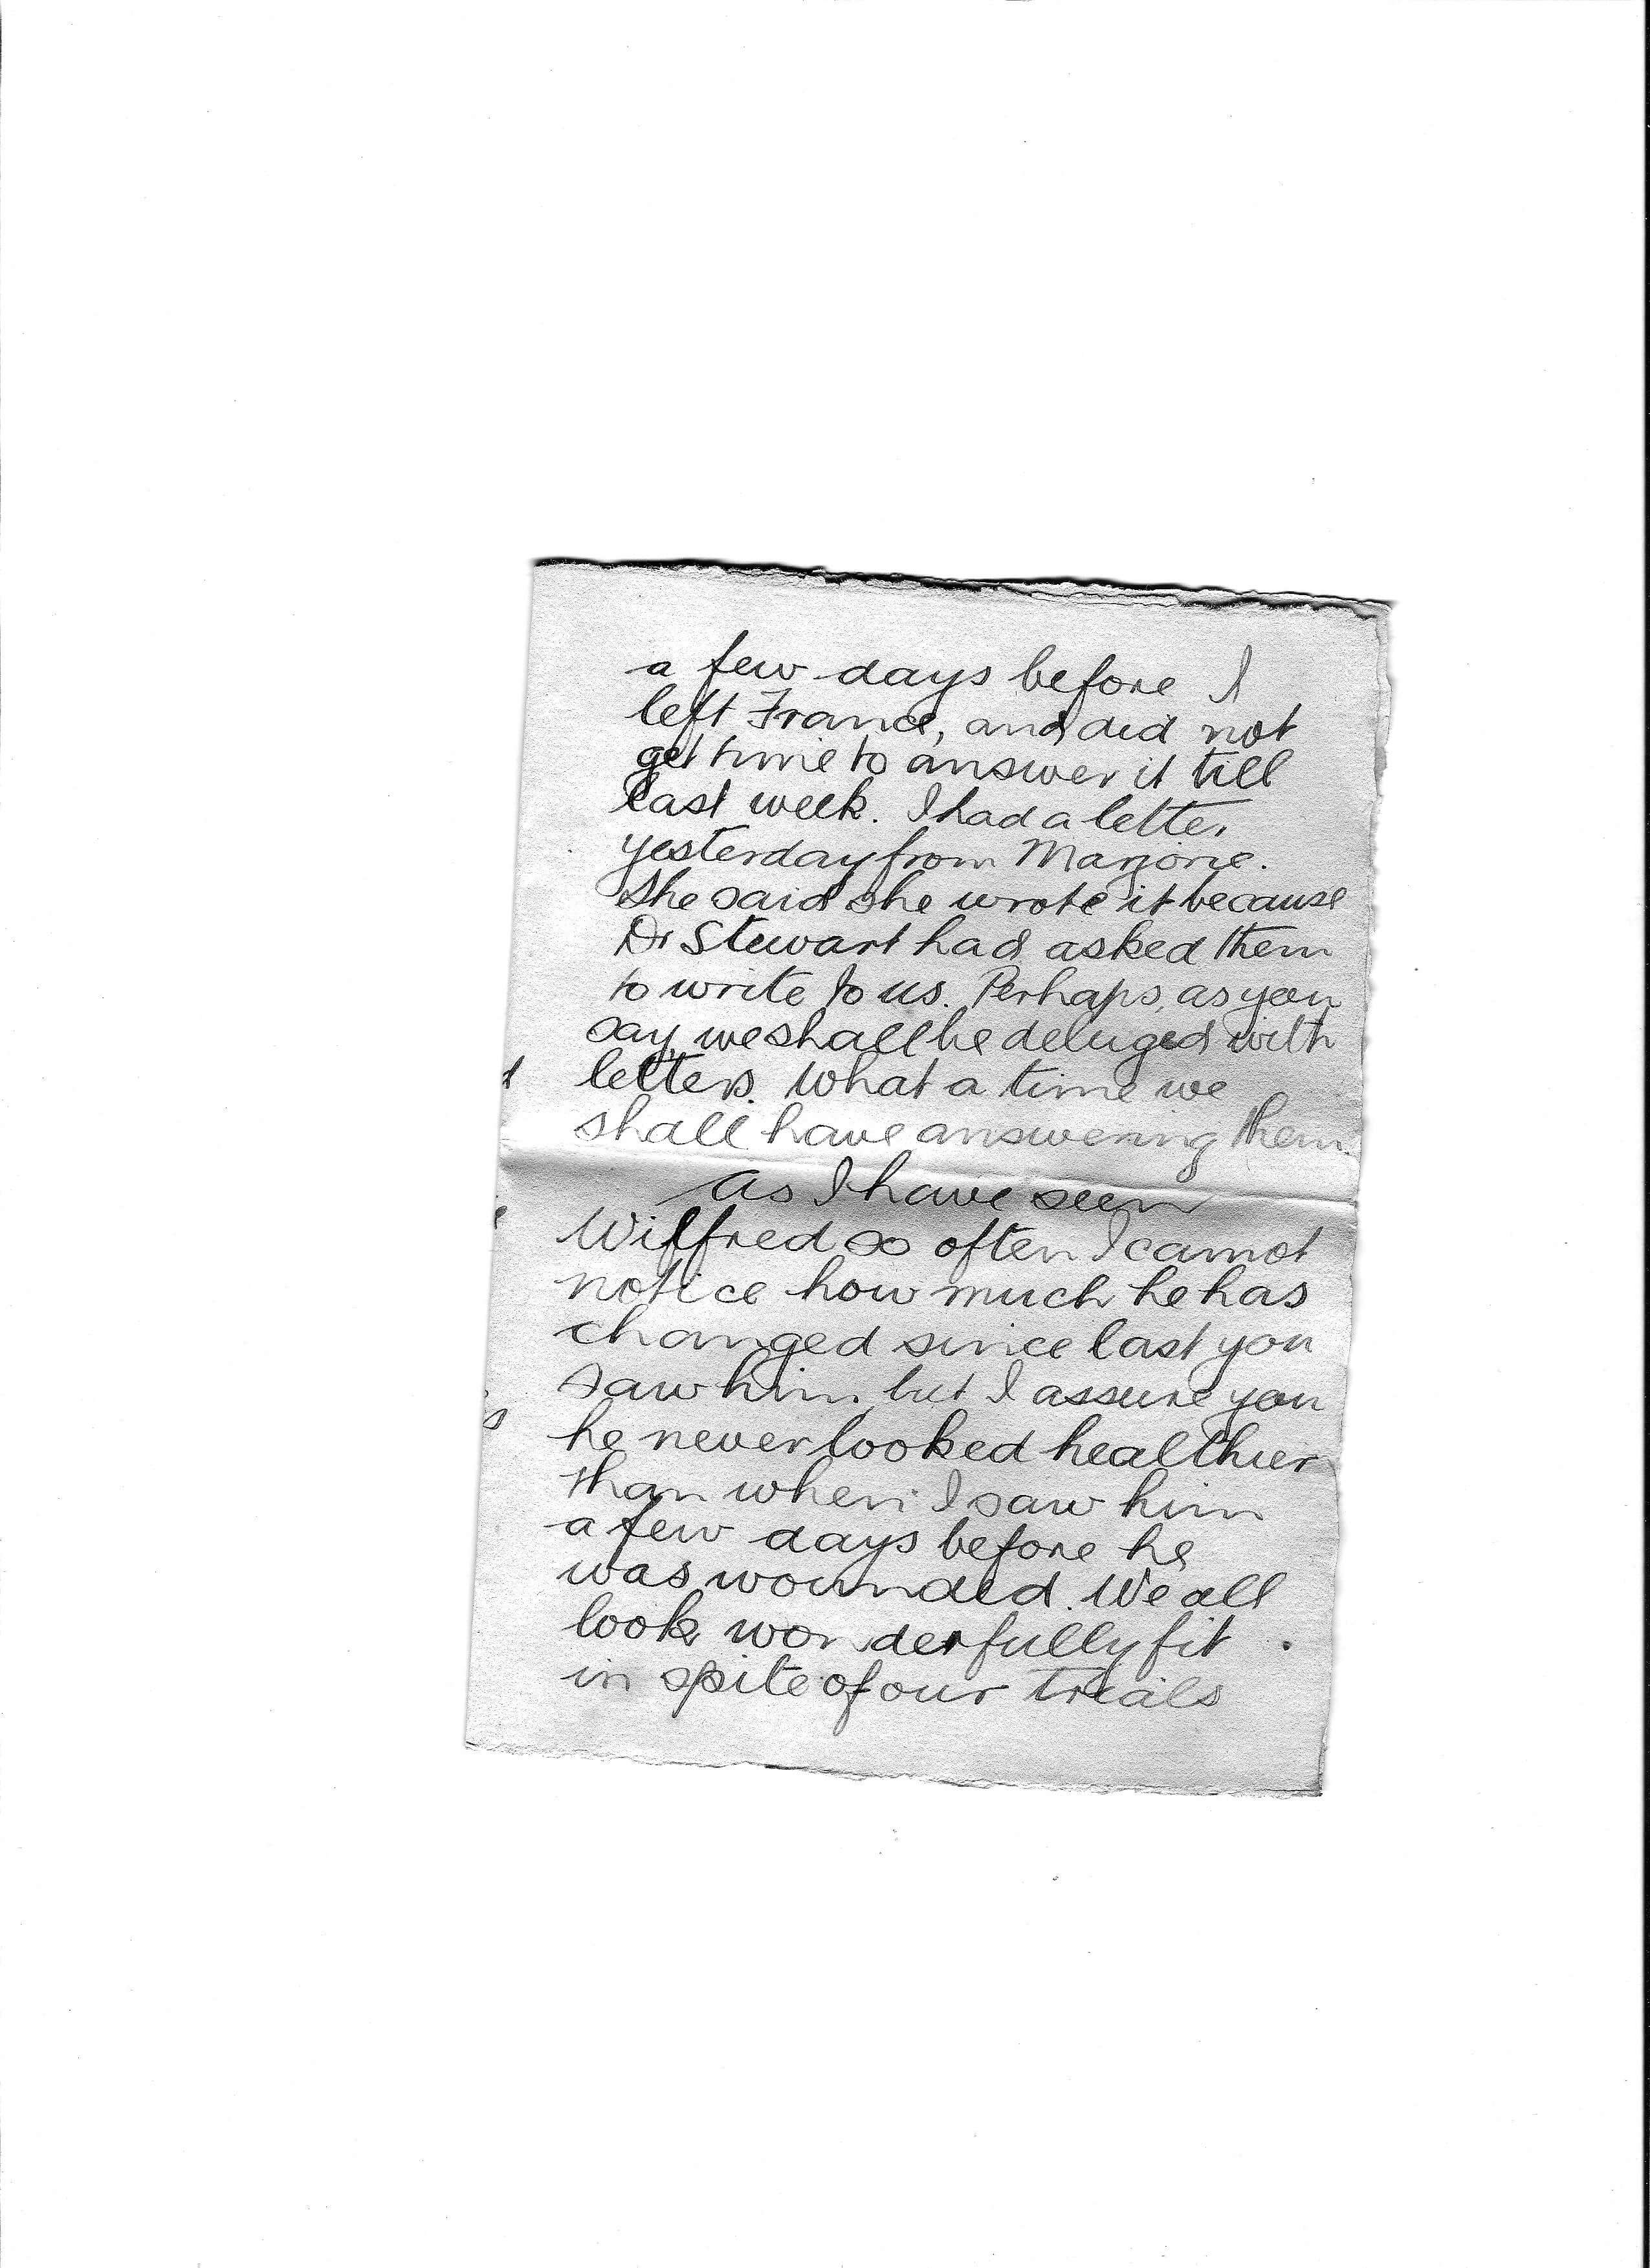 a few days before I
left France, and did not
get time to answer it till
last week. I had a letter
yesterday from Marjorie.
She said she wrote it because
Dr Stewart had asked them
to write to us. Perhaps, as you
say, we shall be deluged with
letters. What a time we
shall have answering them.
As I have seen
Wilfred so often I cannot
notice how much he has
changed since last you
saw him, but I assure you
he never looked healthier
than when I saw him
a few days before he
was wounded. We all
look wonderfully fit
in spite of our trials